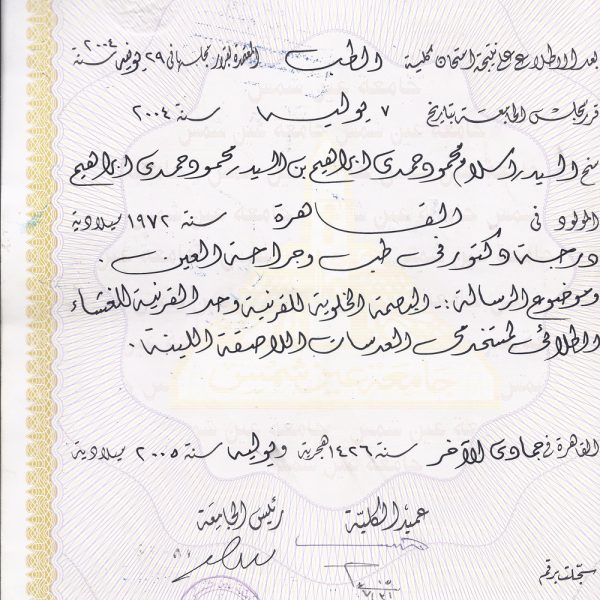 بعد الاطلاع على نتيجة امتحان كلية الطب المقدمة لقرار مجلسها فى ٢٩ يونيه سنة ٢٠٠٤
قرر مجلس الجامعة بتاريخ ٧ يوليه سنة ٢٠٠٤
منح السيد / اسلام محمود حمدى ابراهيم بن السيد / محمود حمدى ابراهيم
المولود فى القاهرة سنة ١٩٧٢ ميلادية
درجة دكتور فى طب وجراحة العين .
وموضوع الرسالة :- البصمة الخلوية للقرنية وحد القرنية للغشاء
الطلائى لمستخدمى العدسات اللاصقة اللينة .
جامعة عين شمس
القاهرة فى جمادى الآخر سنة ١٤٢٦ هجرية ويوليه سنة ٢٠٠٥ ميلادية
عميد الكلية رئيس الجامعة
سجلت برقم